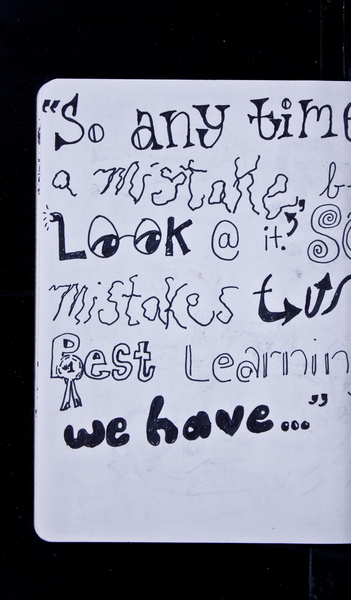 "So any time
a mistake, b
Look @ it. So
mistakes turn
Best Learnin
#1
we have..."